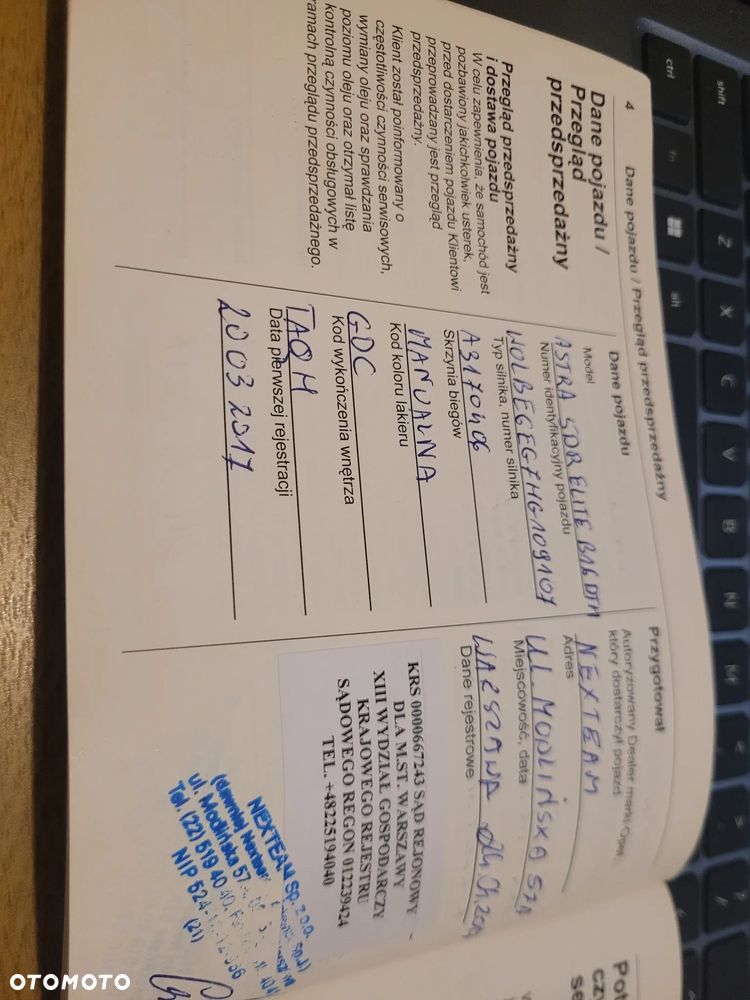 4 Dane pojazdu / Przegląd przedsprzedażny
Dane pojazdu /
Przegląd
przedsprzedażny
Przegląd przedsprzedażny
i dostawa pojazdu
W celu zapewnienia, że samochód jest
pozbawiony jakichkolwiek usterek,
przed dostarczeniem pojazdu Klientowi
przeprowadzany jest przegląd
przedsprzedażny.
Klient został poinformowany o
częstotliwości czynności serwisowych,
wymiany oleju oraz sprawdzania
poziomu oleju oraz otrzymał listę
kontrolną czynności obsługowych w
ramach przeglądu przedsprzedażnego.
Dane pojazdu
Model
ASTRA 5DR ELITE B16DTH
Numer identyfikacyjny pojazdu
W0LBEGEG7HG109107
Typ silnika, numer silnika
A3170406
Skrzynia biegów
MANUALNA
Kod koloru lakieru
GDC
Kod wykończenia wnętrza
TAQM
Data pierwszej rejestracji
20 03 2017
Przygotował
Autoryzowany Dealer marki Opel,
który dostarczył pojazd
NEXTEAM
Adres
UL. MODLIŃSKA
Miejscowość, data
WARSZAWA
Dane rejestrowe
KRS 0000667243 SĄD REJONOWY
DLA M.ST. WARSZAWY
XIII WYDZIAŁ GOSPODARCZY
KRAJOWEGO REJESTRU
SĄDOWEGO REGON 012239424
TEL. +48225194040
NEXTEAM Sp. z o.o.
(dawniej
ul. Modlińska
Tel. (22) 519 40 40
NIP 524-
(21)
shift
ctrl
fn
alt
Z
X
C
V
B
N
M
OTOMOTO